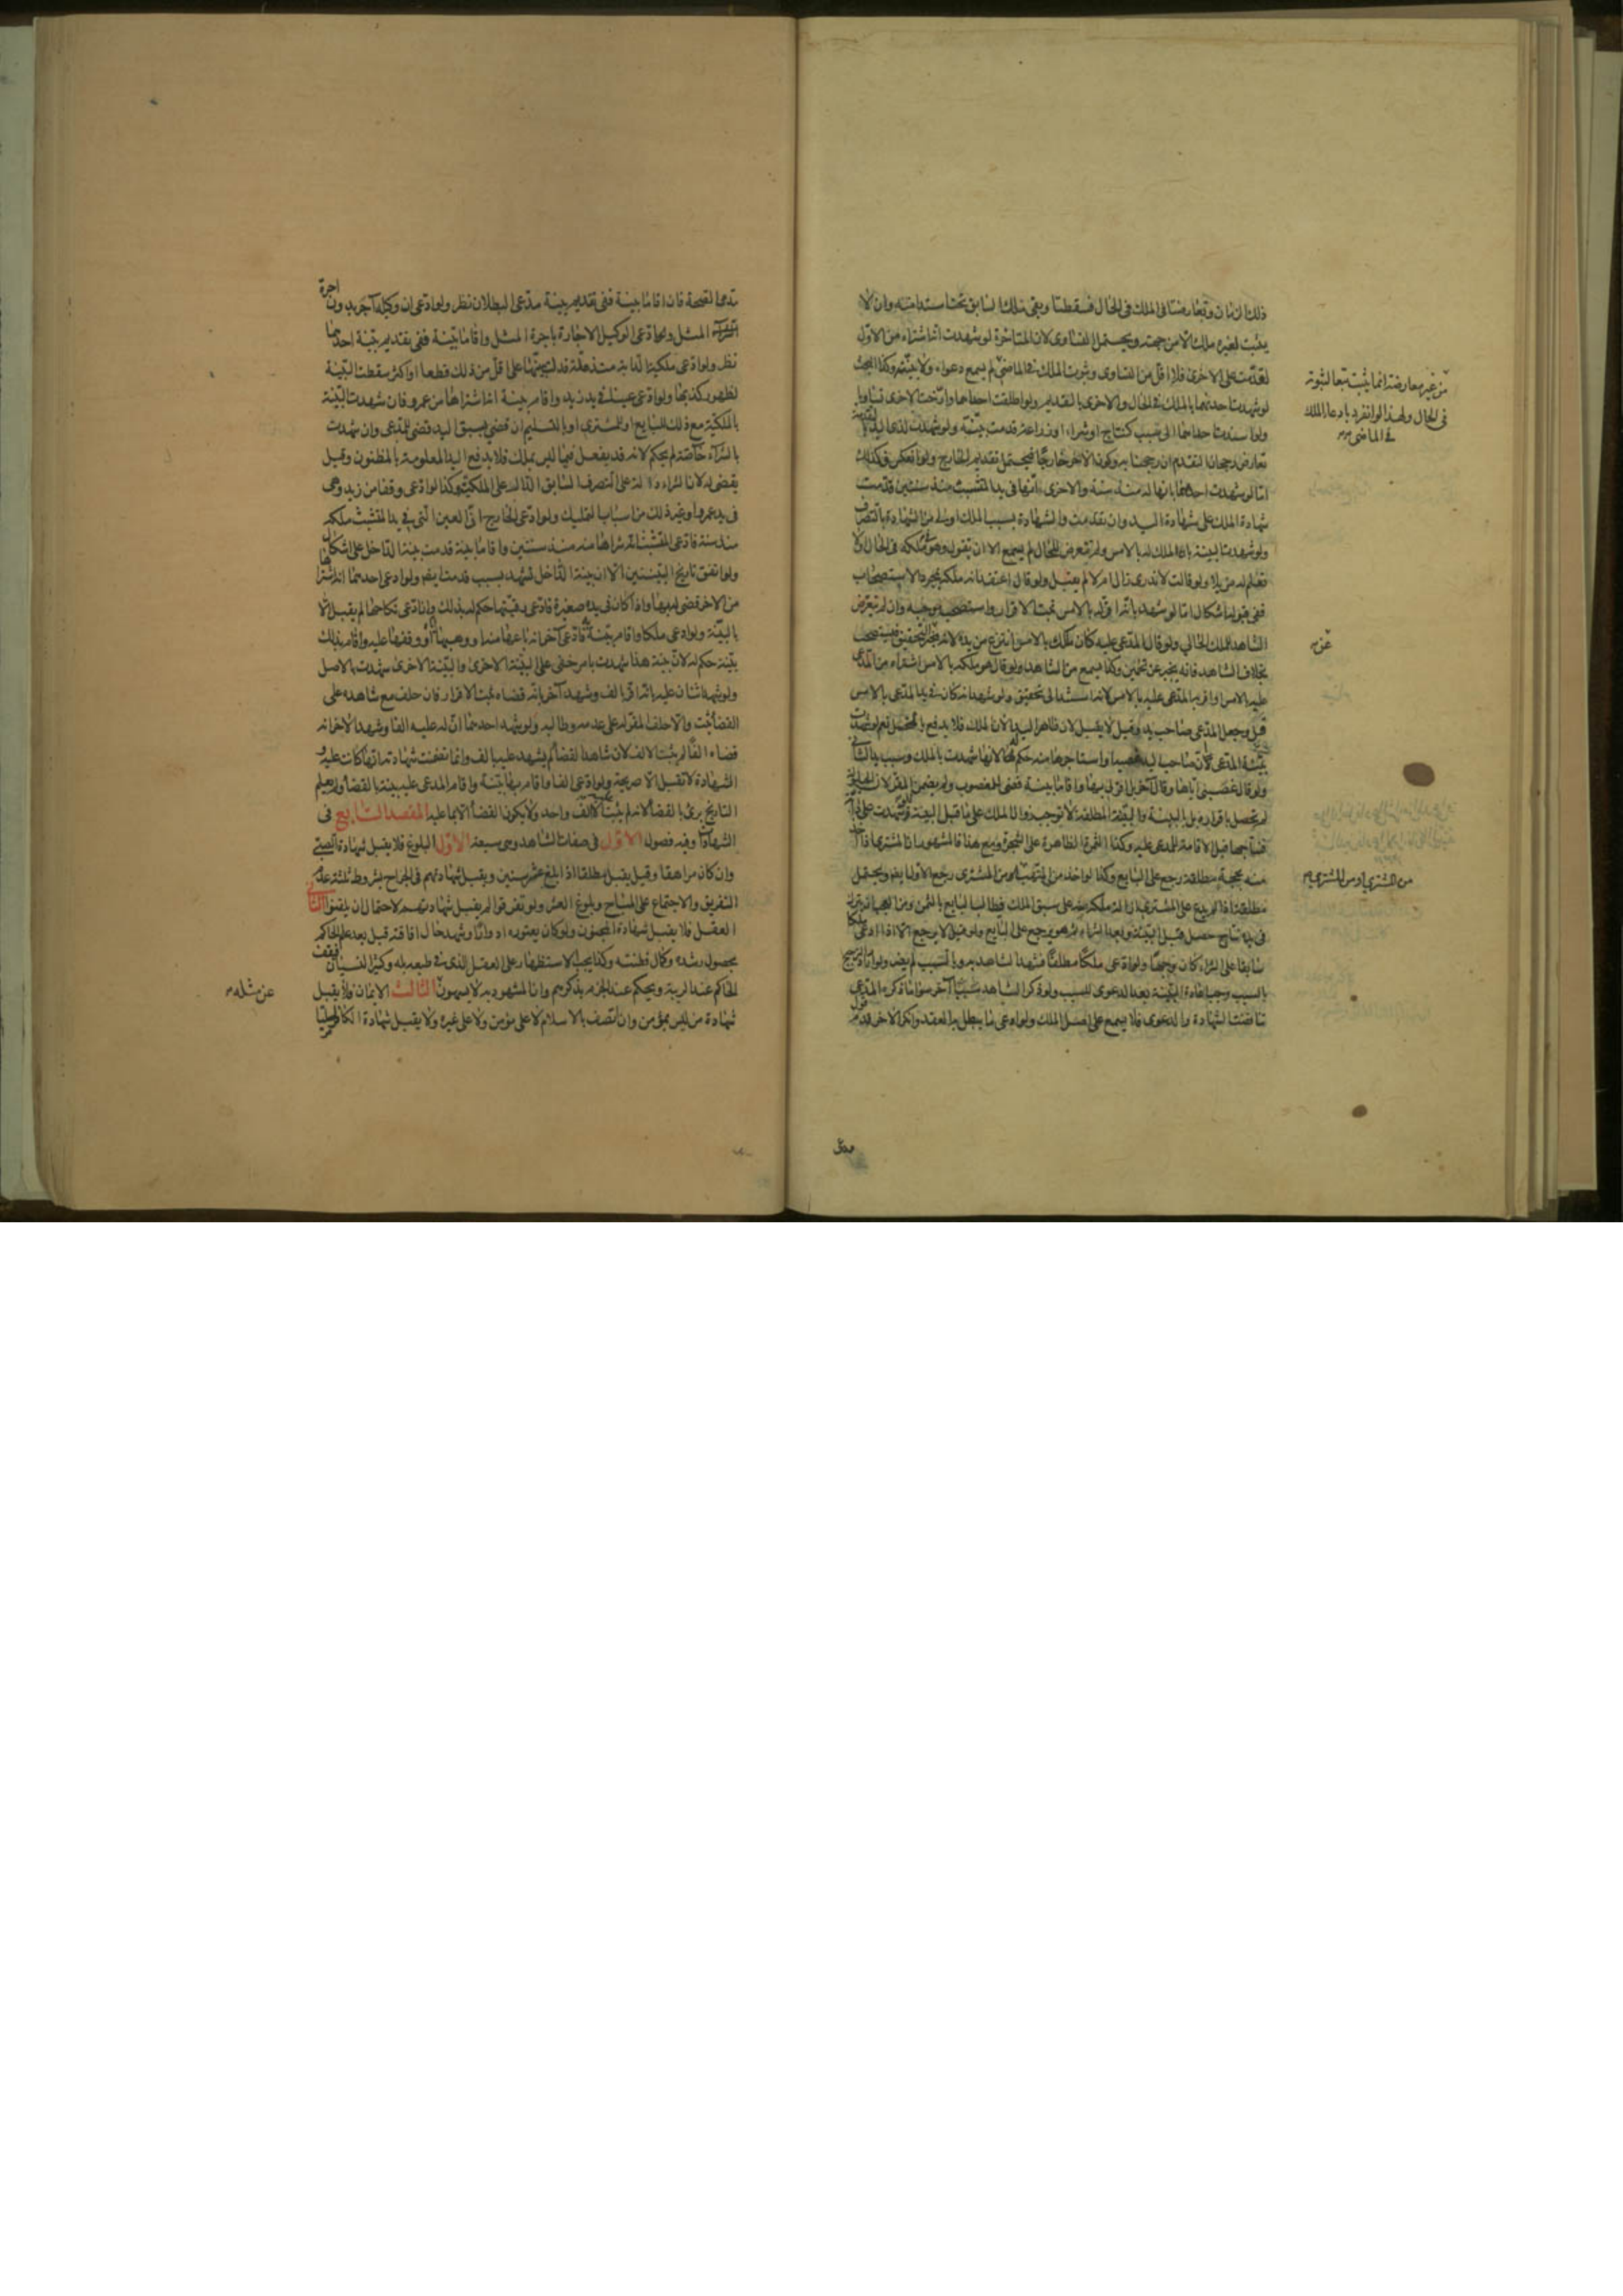 ذلك الزمان وتعارضتا فى الملك فى الحال فسقطتا وبقى ملك السابق تحت استدامته وان لا
يثبت لغيره ملك الا من جهته ويحتمل التساوى لان المتاخرة لو شهدت انه اشتراه من الاول
لقدمت على الاخرى فلا اقل من التساوى وثبوت الملك فى الماضى لم يسمع دعواه ولا بينته وكذا البحث
لو شهدت احدتهما بالملك فى الحال والاخرى بالقديم ولو اطلقت احداهما وارخت الاخرى تساويا
ولو اسندت احداهما الى سبب كنتاج او شراء او زراعة قدمت بينته ولو شهدت لذى اليد القديمة
تعارض رجحان التقدم ان رجحنا به وكون الاخر خارجا فيحتمل تقديم الخارج ولو انعكس فكذلك
اما لو شهدت احداهما بانها له منذ سنة والاخرى انها فى يد المتشبث منذ سنتين قدمت
شهادة الملك على شهادة اليد وان تقدمت والشهادة بسبب الملك اولى من الشهادة بالتصرف
ولو شهدت البينة بان الملك له بالامس ولم تتعرض للحال لم يسمع الا ان تقول وهو ملكه فى الحال او لا
نعلم له مزيلا ولو قالت لا ندرى زال ام لا لم يقبل ولو قال اعتقد انه ملكه بمجرد الاستصحاب
ففى قبوله اشكال اما لو شهد بانه اقر له بالامس ثبت الاقرار واستصحب موجبه وان لم يتعرض
الشاهد للملك الحالى ولو قال المدعى عليه كان ملكك بالامس انتزع من يده لانه مخبر عن تحقيق فيستصحب
بخلاف الشاهد فانه يخبر عن تخمين وكذا يسمع من الشاهد لو قال هو ملكه بالامس اشتراه من المدعى
عليه بالامس او اقر به المدعى عليه بالامس لانه استند الى تحقيق ولو شهد انه كان فى يد المدعى بالامس
قبل وجعل المدعى صاحب يد وقيل لا يقبل لان ظاهر اليد الان الملك فلا يدفع بالمحتمل نعم لو شهدت
بينة المدعى ان صاحب اليد غصبها او استاجرها منه حكم له لانها شهدت بالملك وسبب يد الثانى
ولو قال غصبنى اياها وقال آخر بل اقر لى بها واقاما بينة قضى للمغصوب ولم يضمن المقر لان الحيلولة
لم تحصل باقراره بل بالبينة والبينة المطلقة لا توجب زوال الملك على ما قبل البينة فلو شهدت على دابة
فنتاجها قبل الاقامة للمدعى عليه وكذا الثمرة الظاهرة على الشجرة ومع هذا فالمشهور ان المشترى اذا اخذ
منه بحجة مطلقة رجع على البايع وكذا لو اخذ من المتهب من المشترى رجع الاول ايضا ويحتمل
مطلقة اذا لم يدع على المشترى ازالة ملكه منه على سبق الملك فيطالب البايع بالثمن ومن العجب ان يترك
فى يده نتاج حصل قبل البينة وبعد الشراء ثم هو يرجع على البايع ولو قيل لا يرجع الا اذا ادعى ملكا
سابقا على الشراء كان وجها ولو ادعى ملكا مطلقا فشهد الشاهد به وبالسبب لم يضر ولو اراد الترجيح
بالسبب وجب اعادة البينة بعد الدعوى للسبب ولو ذكر الشاهد سببا آخر سوى ما ذكره المدعى
تناقضت الشهادة والدعوى فلا يسمع على اصل الملك ولو ادعى ما يبطل به العقد وانكر الاخر قدم قول
من غير معارضة انما يثبت تبعا لثبوته
فى الحال ولهذا لو انفرد بادعاء الملك
فى الماضى
عن
من المشترى او من المشترى
مدعى الصحة فان اقاما بينة ففى تقديم بينة مدعى البطلان نظر ولو ادعى ان وكيله آجر بدون اجرة
المثل وادعى الوكيل الاجارة باجرة المثل واقاما بينة ففى تقديم بينة احدهما
نظر ولو ادعى ملكية الدابة منذ مدة فدلت سنها على اقل من ذلك قطعا او اكثر سقطت البينة
لظهور كذبها ولو ادعى عينا فى يد زيد واقام بينة انه اشتراها من عمرو فان شهدت البينة
بالملكية مع ذلك للبايع او للمشترى او بالتسليم ان قضى بسبق اليد قضى للمدعى وان شهدت
بالشراء خاصة لم يحكم لانه قد يفعل فيما ليس بملك فلا يدفع اليد المعلومة بالمظنون وقيل
يقضى له لان الشراء دلالة على التصرف السابق الدال على الملكية وكذا لو ادعى وقفا من زيد وهى
فى يد عمرو او غير ذلك من اسباب التمليك ولو ادعى الخارج ان العين التى فى يد المتشبث ملكه
منذ سنة فادعى المتشبث انه شراها منه منذ سنتين واقاما بينة قدمت بينة الداخل على اشكال
ولو اتفق تاريخ البينتين الا ان بينة الداخل تشهد بسبب قدمت ايضا ولو ادعى احدهما انه اشتراها
من الاخر قضى له بها واذا كان فى يده صغيرة فادعى رقيتها حكم له بذلك وان ادعى نكاحها لم يقبل الا
بالبينة ولو ادعى ملكا واقام بينة فادعى آخر انه باعها منه او وهبها او وقفها عليه واقام بذلك
بينة حكم له لان بينة هذا شهدت بامر خفى على البينة الاخرى والبينة الاخرى شهدت بالاصل
ولو شهد اثنان عليه بانه اقر بالف وشهد آخر بانه قضاه ثبت الاقرار فان حلف مع شاهده على
القضاء ثبت والا حلف المقر له على عدمه وطالبه ولو شهد احدهما ان له عليه الفا وشهد الاخر انه
قضاه الفا لم يثبت الالف لان شاهد القضاء لم يشهد عليه بالف وانما تضمنت شهادته انها كانت عليه و
الشهادة لا تقبل الا صريحة ولو ادعى الفا واقام بها بينة واقام المدعى عليه بينة بالقضاء ولم يعلم
التاريخ برئ بالقضاء لانه لم يثبت الا الف واحد ولا يكون القضاء الا لما عليه المقصد السابع فى
الشهادات وفيه فصول الاول فى صفات الشاهد وهى سبعة الاول البلوغ فلا يقبل شهادة الصبى
وان كان مراهقا وقيل يقبل مطلقا اذا بلغ عشر سنين ويقبل شهادتهم فى الجراح بشروط ثلثة عدم
التفريق والاجتماع على المباح وبلوغ العشر ولو تفرقوا لم يقبل شهادتهم لاحتمال ان يلقنوا الثانى
العقل فلا يقبل شهادة المجنون ولو كان يعتوره ادوارا وشهد حال افاقته قبل بعد علم الحاكم
بحصول رشده وكمال فطنته وكذا يجب الاستظهار على المغفل الذى فى طبعه بله وكثير النسيان فيقف
الحاكم عند الريبة ويحكم عند الجزم بذكرهم وان المشهود به لا يسهون الثالث الايمان فلا يقبل
شهادة من ليس بمؤمن وان اتصف بالاسلام لا على مؤمن ولا على غيره ولا يقبل شهادة الكافر اصليا
عن مثله